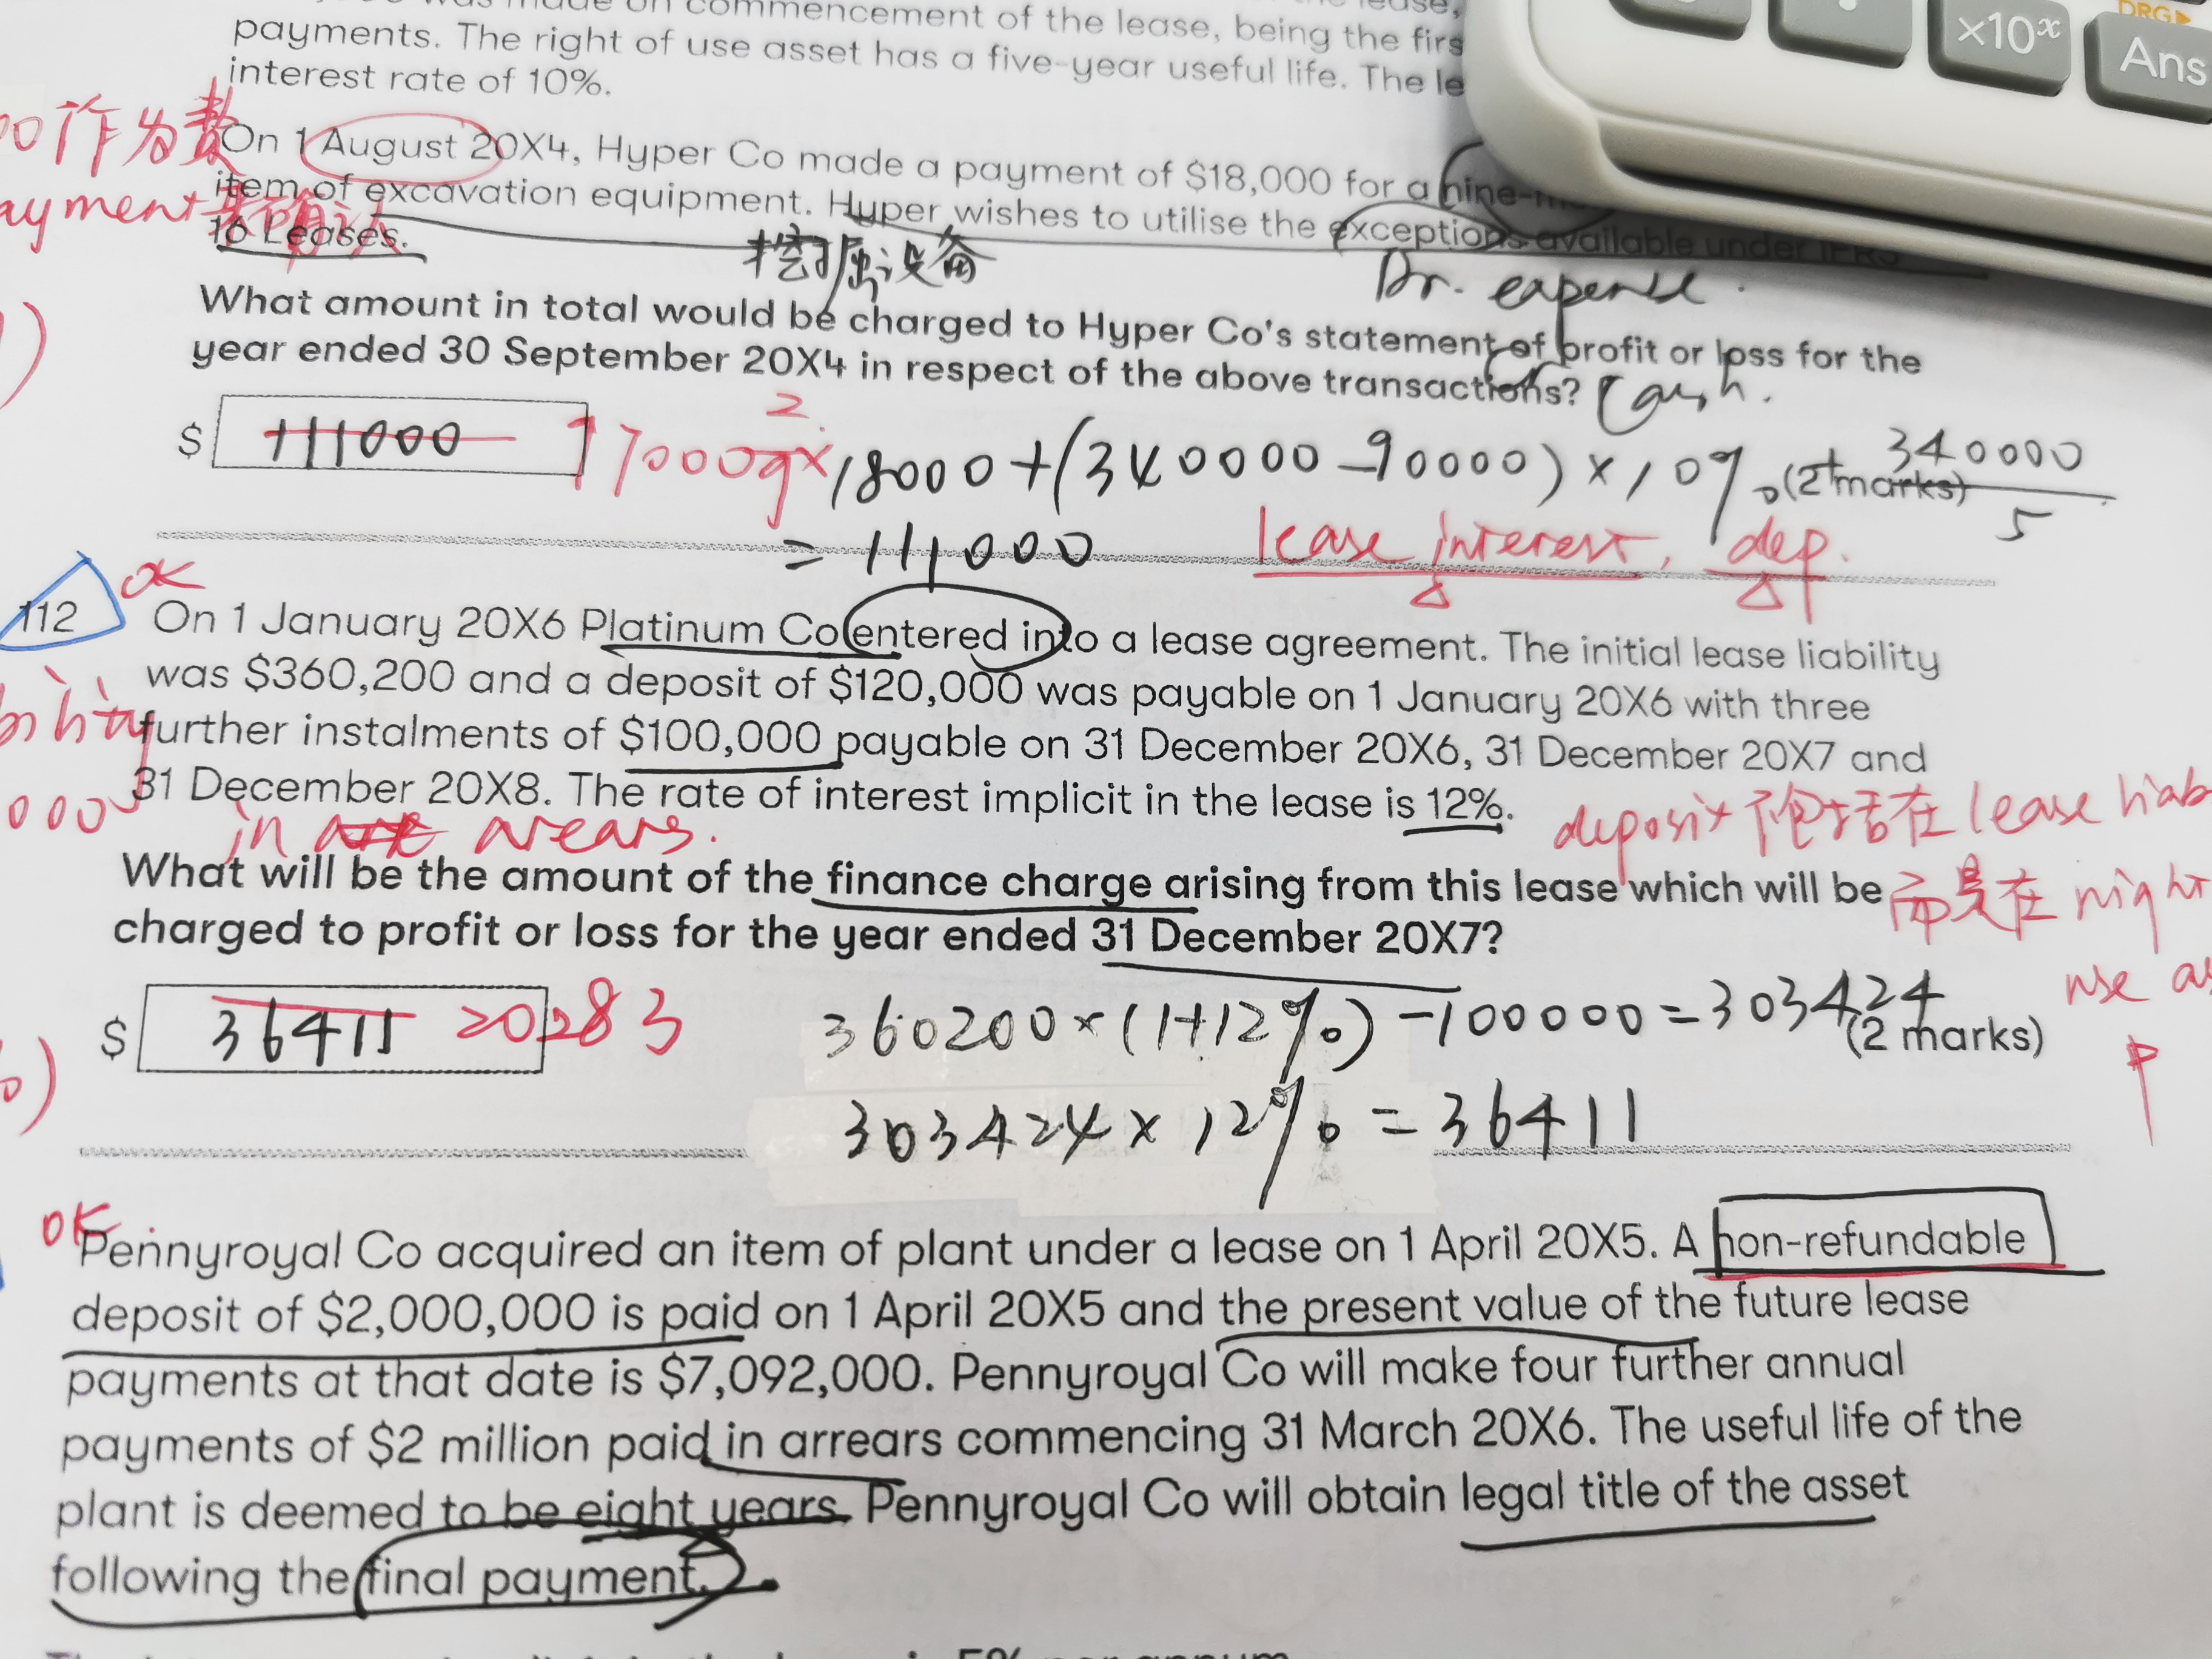 commencement of the lease, being the firs
payments. The right of use asset has a five-year useful life. The le
interest rate of 10%.
×10ˣ
DRG▶
Ans
00作为费
On 1 August 20X4, Hyper Co made a payment of $18,000 for a nine-m
item of excavation equipment. Hyper wishes to utilise the exceptions available under IFRS
16 Leases.
ayment
挖掘设备
Dr. expense.
What amount in total would be charged to Hyper Co's statement of profit or loss for the
year ended 30 September 20X4 in respect of the above transactions?
Cash.
$ 111000 17000
2/9 × 18000 + (340000 - 90000) × 10% + 340000/5
(2 marks)
= 111000
lease interest, dep.
ok
112 On 1 January 20X6 Platinum Co entered into a lease agreement. The initial lease liability
was $360,200 and a deposit of $120,000 was payable on 1 January 20X6 with three
further instalments of $100,000 payable on 31 December 20X6, 31 December 20X7 and
31 December 20X8. The rate of interest implicit in the lease is 12%.
bility
000
in arears.
deposit 不包括在 lease liab
而是在 right
use as
What will be the amount of the finance charge arising from this lease which will be
charged to profit or loss for the year ended 31 December 20X7?
$ 36411 20283
360200 × (1+12%) - 100000 = 303424
(2 marks)
303424 × 12% = 36411
OK
Pennyroyal Co acquired an item of plant under a lease on 1 April 20X5. A non-refundable
deposit of $2,000,000 is paid on 1 April 20X5 and the present value of the future lease
payments at that date is $7,092,000. Pennyroyal Co will make four further annual
payments of $2 million paid in arrears commencing 31 March 20X6. The useful life of the
plant is deemed to be eight years. Pennyroyal Co will obtain legal title of the asset
following the final payment.
5% per annum